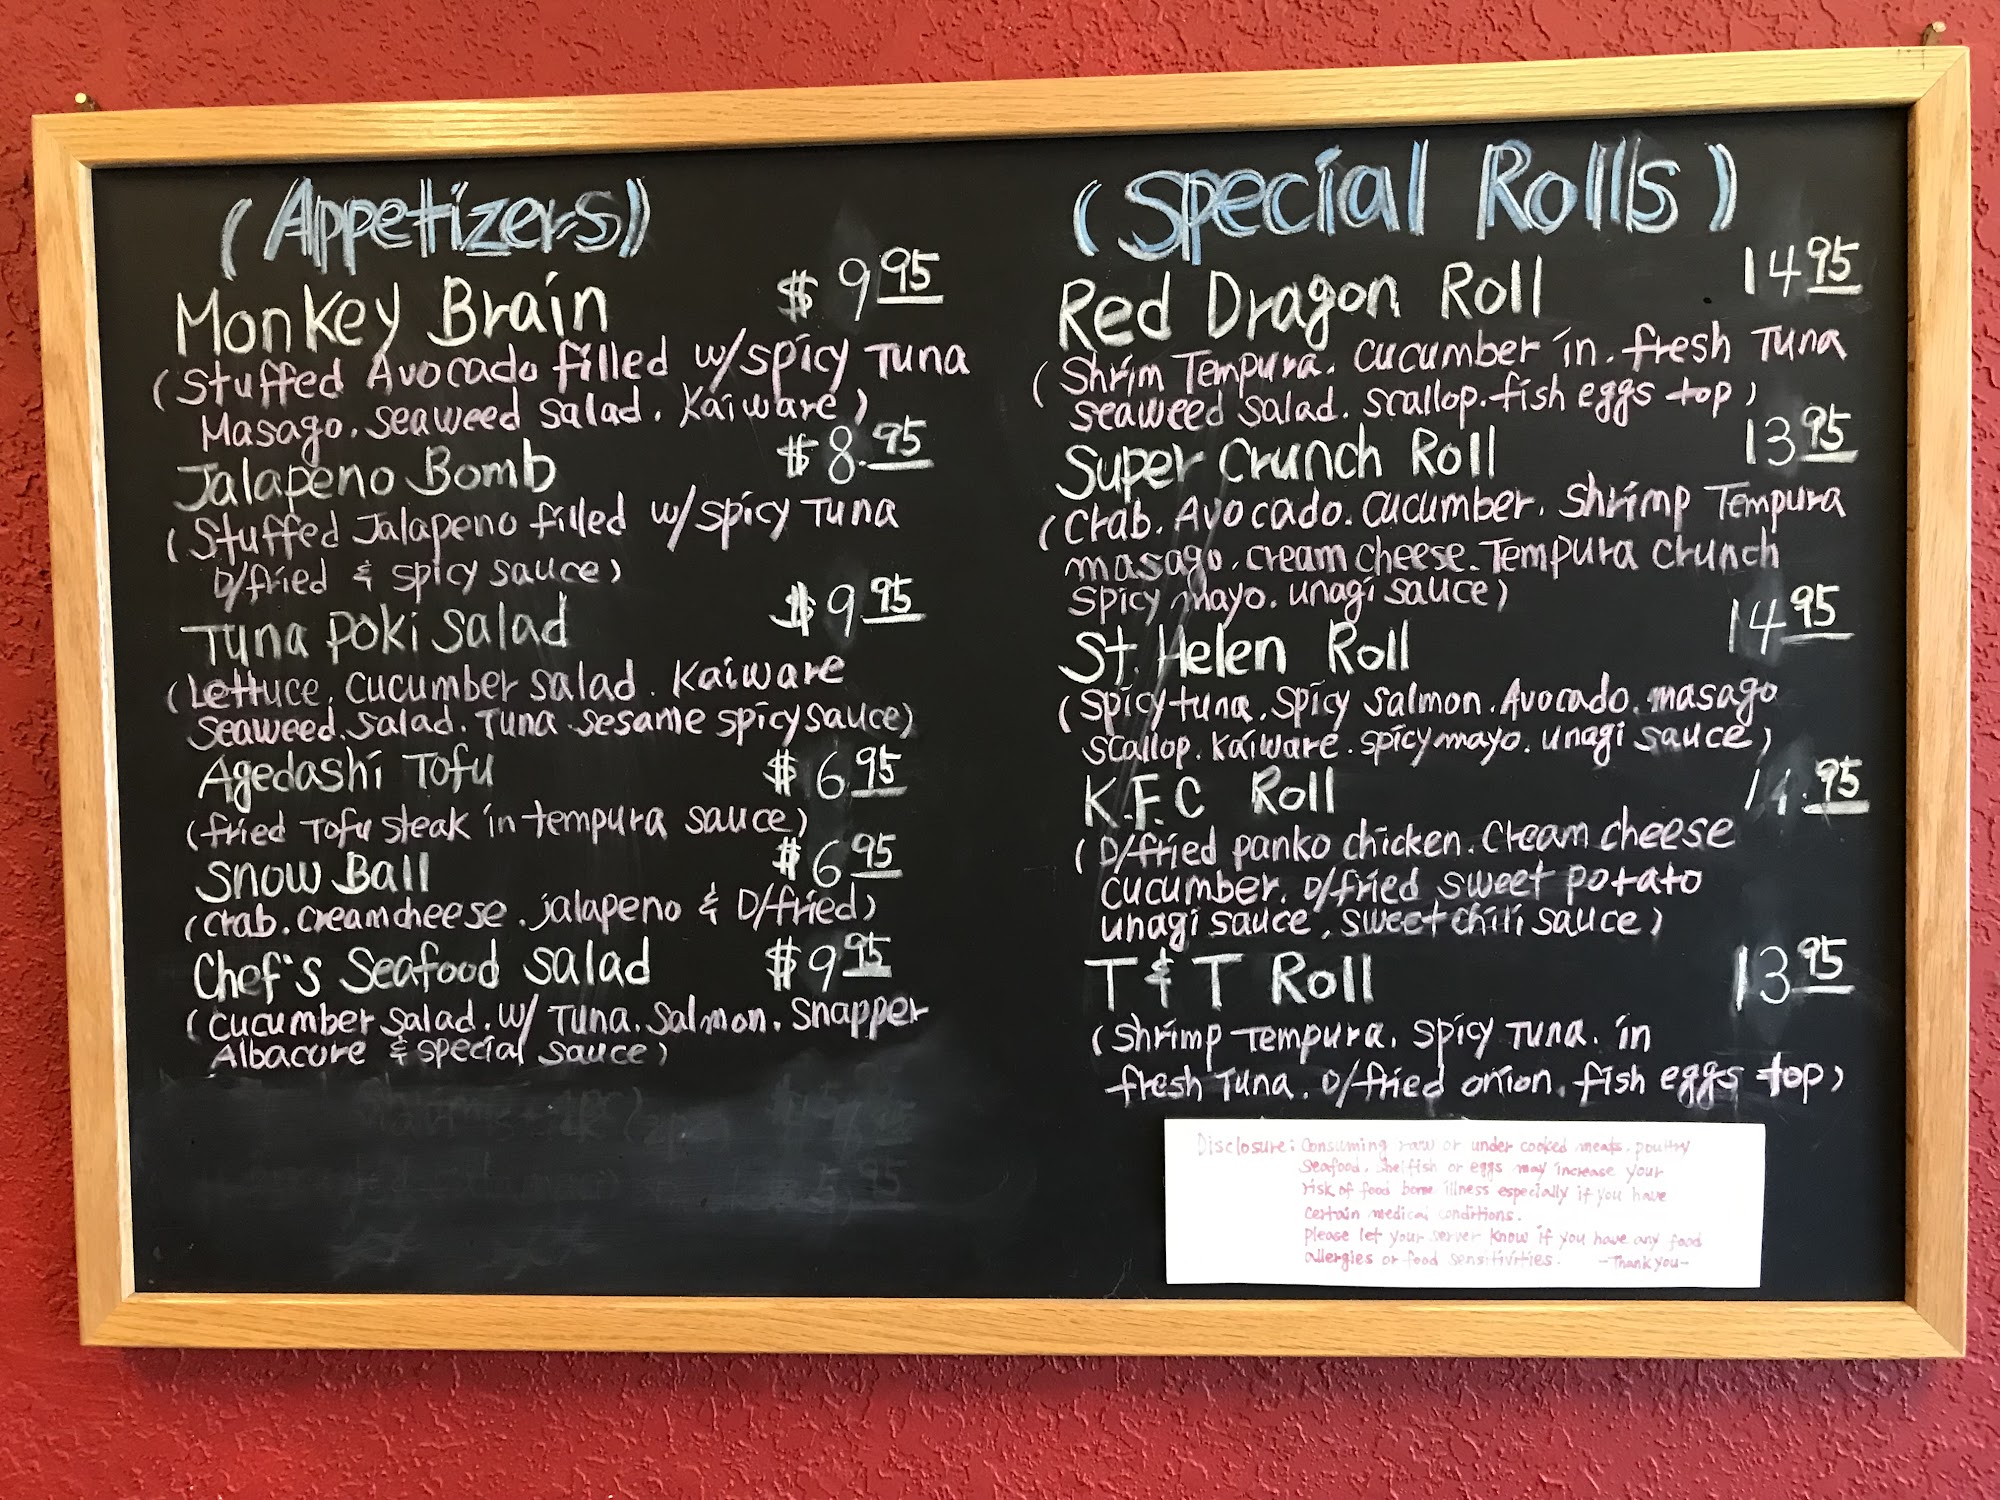 (Appetizers)
Monkey Brain $9.95
(Stuffed Avocado filled w/spicy Tuna
Masago. seaweed salad. Kaiware)
Jalapeno Bomb $8.95
(Stuffed Jalapeno filled w/spicy Tuna
D/fried & spicy sauce)
Tuna Poki Salad $9.95
(Lettuce, cucumber salad. Kaiware
Seaweed. salad. Tuna. sesame spicy sauce)
Agedashi Tofu $6.95
(fried Tofu steak in tempura sauce)
Snow Ball $6.95
(crab. creamcheese. jalapeno & D/fried)
Chef's Seafood Salad $9.95
(cucumber salad. w/ Tuna. Salmon. Snapper
Albacore & special sauce)
(Special Rolls)
Red Dragon Roll 14.95
(Shrim Tempura. cucumber in. fresh Tuna
seaweed salad. scallop. fish eggs top)
Super Crunch Roll 13.95
(Crab. Avocado. cucumber. Shrimp Tempura
masago. cream cheese. Tempura crunch
spicy mayo. unagi sauce)
St. Helen Roll 14.95
(Spicy tuna. spicy salmon. Avocado. masago
scallop. Kaiware. spicy mayo. unagi sauce)
K.F.C Roll 14.95
(D/fried panko chicken. cream cheese
cucumber. D/fried sweet potato
unagi sauce. sweet chili sauce)
T & T Roll 13.95
(Shrimp Tempura. spicy Tuna. in
fresh Tuna. D/fried onion. fish eggs top)
Disclosure: Consuming raw or under cooked meats. poultry
Seafood. Shelfish or eggs may increase your
risk of food borne illness especially if you have
certain medical conditions.
Please let your server know if you have any food
allergies or food sensitivities. -Thank you-